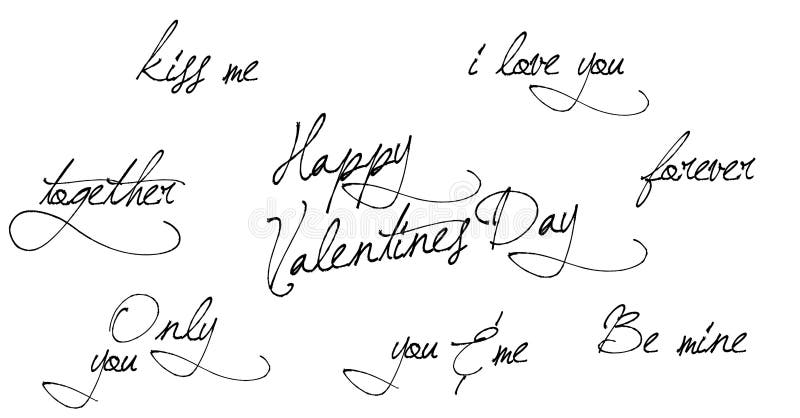 kiss me
i love you
together
Happy
Valentines Day
forever
Only
you
you & me
Be mine